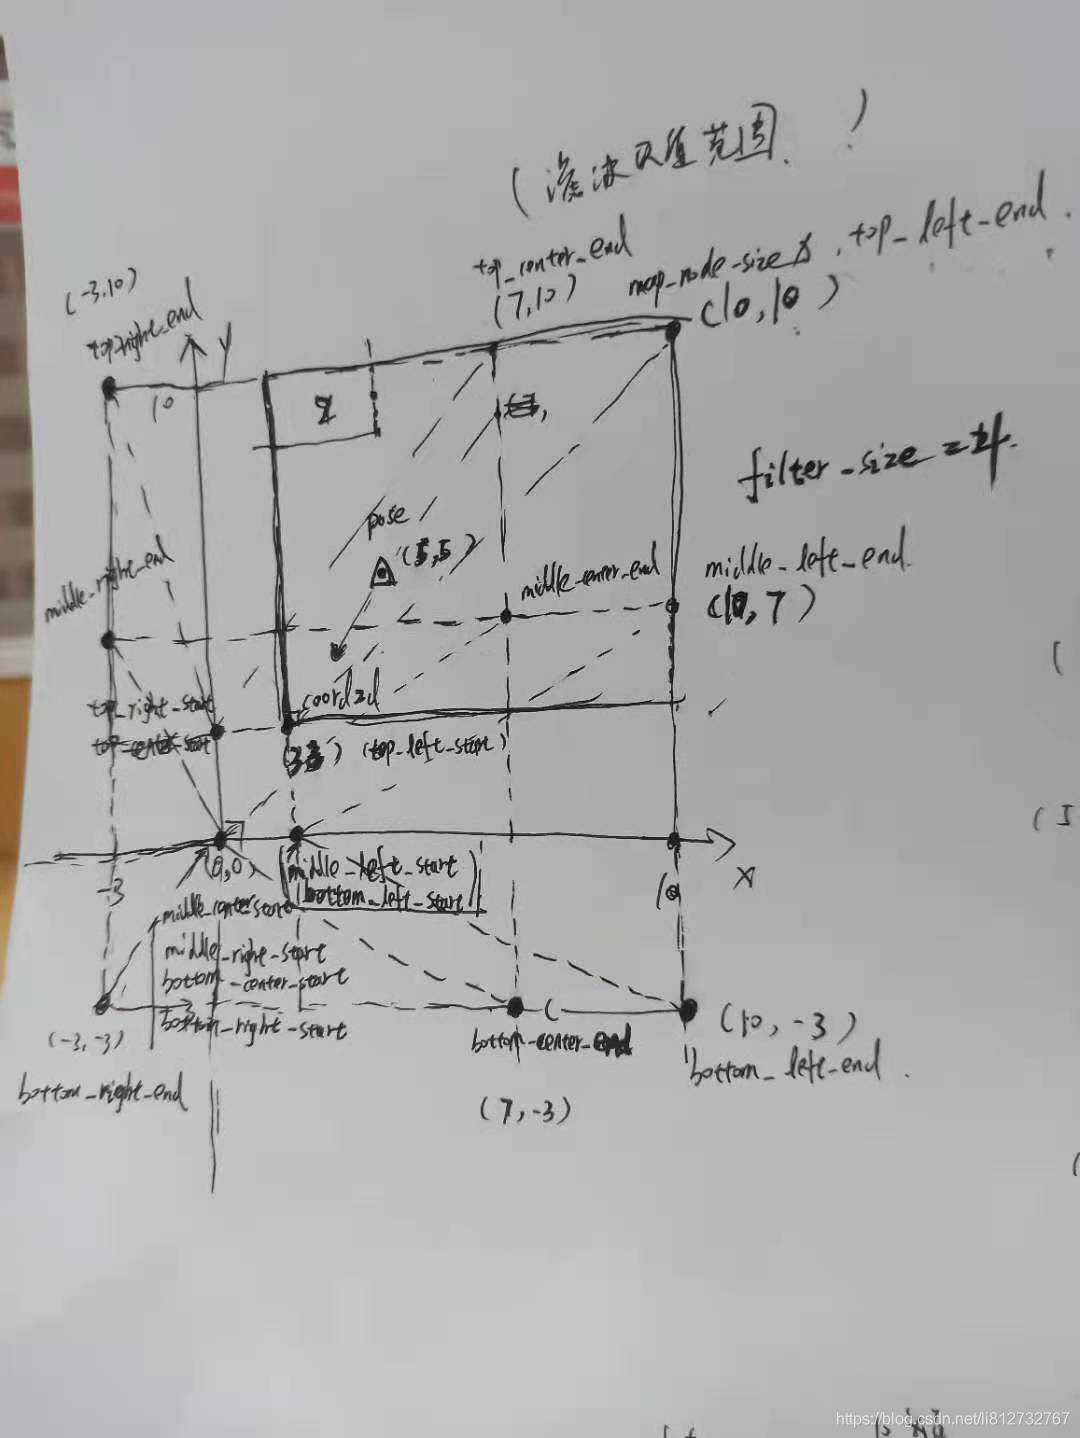 (滤波取值范围. )
top_center_end
(7,10)
map_node_size
, top_left_end.
(10,10)
(-3,10)
top_right_end
y
10
2
filter_size =
pose
(5,5)
middle_center_end
middle_left_end.
(10,7)
middle_right_end
coord2d
top_right_start
top_center_start
(33) (top_left_start)
(0,0)
-3
(middle_left_start)
bottom_left_start
10
X
middle_center_start
middle_right_start
bottom_center_start
bottom_right_start
(-3,-3)
bottom_right_end
bottom_center_end
(7,-3)
(10,-3)
bottom_left_end.
https://blog.csdn.net/li812732767